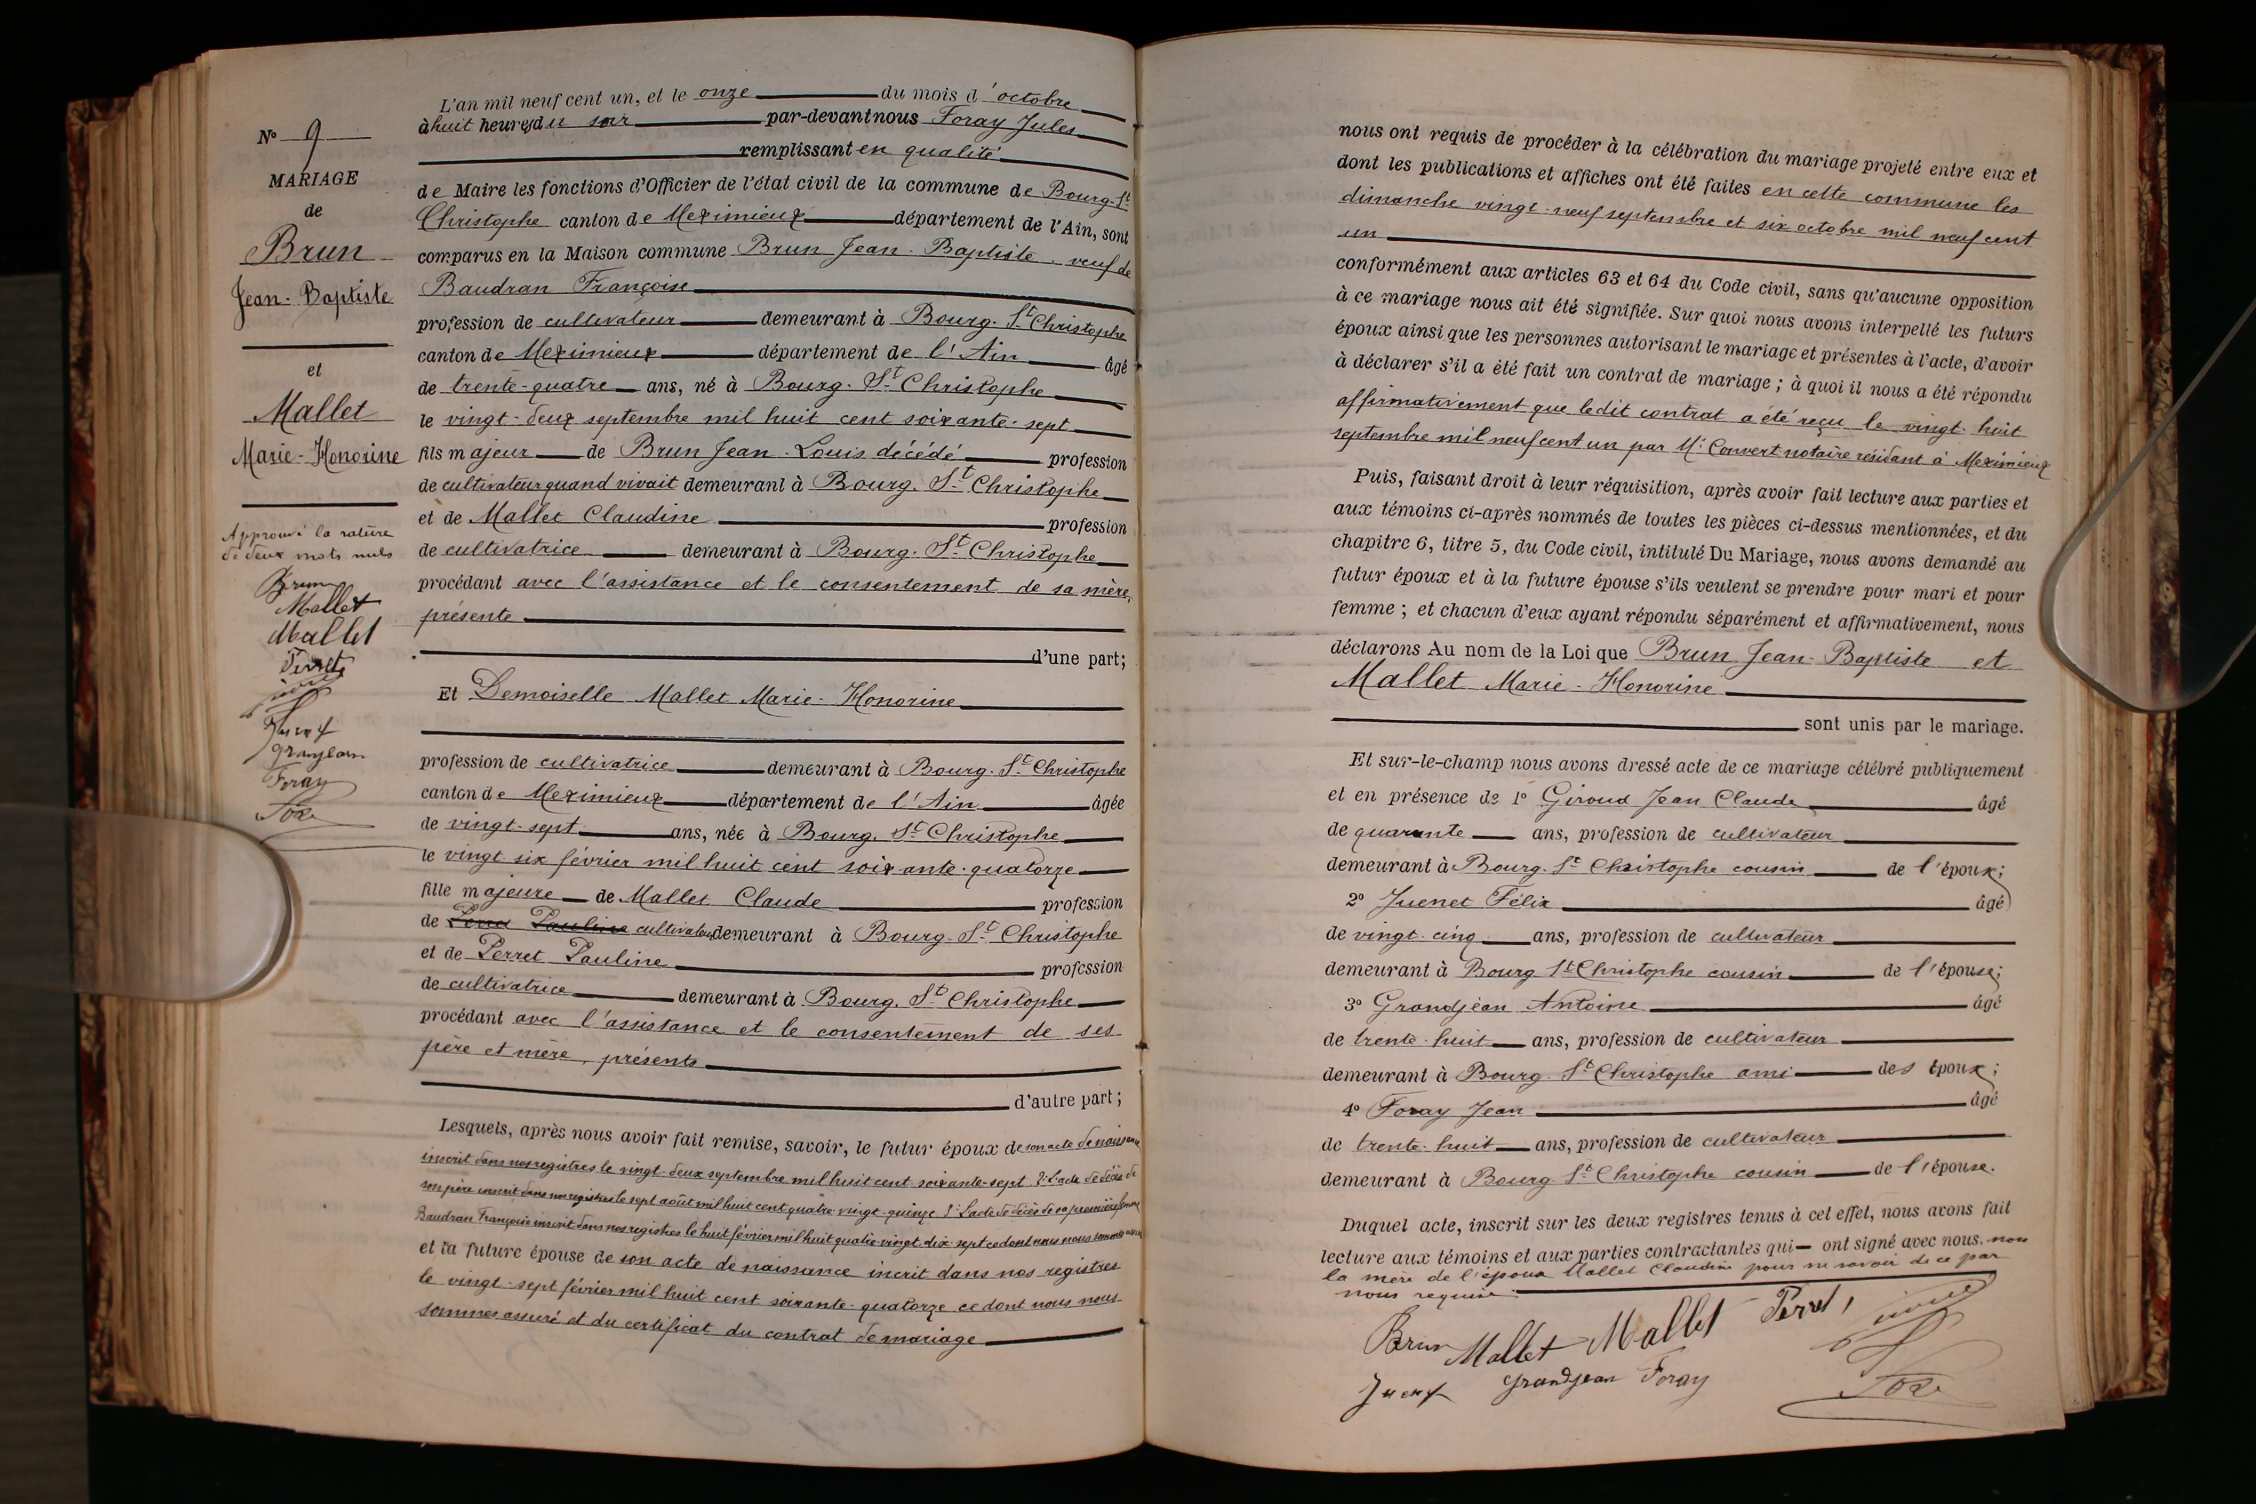 N° 9
MARIAGE
de
Brun
Jean-Baptiste
et
Mallet
Marie-Honorine
Approuvé la rature
de deux mots nuls
Brun
Mallet
Mallet
Perret
Juenet
Grandjean
Foray
L'an mil neuf cent un, et le onze du mois d'octobre
à huit heures du soir par-devant nous Foray Jules
remplissant en qualité
de Maire les fonctions d'Officier de l'état civil de la commune de Bourg-St
Christophe canton de Meximieux département de l'Ain, sont
comparus en la Maison commune Brun Jean-Baptiste, veuf de
Baudran Françoise
profession de cultivateur demeurant à Bourg-St Christophe
canton de Meximieux département de l'Ain âgé
de trente-quatre ans, né à Bourg-St Christophe
le vingt-deux septembre mil huit cent soixante-sept
fils majeur de Brun Jean-Louis décédé profession
de cultivateur quand vivait demeurant à Bourg-St Christophe
et de Mallet Claudine profession
de cultivatrice demeurant à Bourg-St Christophe
procédant avec l'assistance et le consentement de sa mère,
présente
d'une part;
Et Demoiselle Mallet Marie-Honorine
profession de cultivatrice demeurant à Bourg-St Christophe
canton de Meximieux département de l'Ain âgée
de vingt-sept ans, née à Bourg-St Christophe
le vingt six février mil huit cent soixante-quatorze
fille majeure de Mallet Claude profession
de Pauline cultivateur demeurant à Bourg-St Christophe
et de Perret Pauline profession
de cultivatrice demeurant à Bourg-St Christophe
procédant avec l'assistance et le consentement de ses
père et mère, présents
d'autre part;
Lesquels, après nous avoir fait remise, savoir, le futur époux de son acte de naissance
inscrit dans nos registres le vingt-deux septembre mil huit cent soixante-sept 2° L'acte de décès de
son père inscrit dans nos registres le sept août mil huit cent quatre-vingt-quinze 3° L'acte de décès de sa première femme
Baudran Françoise inscrit dans nos registres le huit février mil huit quatre-vingt-dix-sept ce dont nous nous sommes assuré
et la future épouse de son acte de naissance incrit dans nos registres
le vingt-sept février mil huit cent soixante-quatorze ce dont nous nous
sommes assuré et du certificat du contrat de mariage
nous ont requis de procéder à la célébration du mariage projeté entre eux et
dont les publications et affiches ont été faites en cette commune les
dimanche vingt-neuf septembre et six octobre mil neuf cent
un
conformément aux articles 63 et 64 du Code civil, sans qu'aucune opposition
à ce mariage nous ait été signifiée. Sur quoi nous avons interpellé les futurs
époux ainsi que les personnes autorisant le mariage et présentes à l'acte, d'avoir
à déclarer s'il a été fait un contrat de mariage; à quoi il nous a été répondu
affirmativement que ledit contrat a été reçu le vingt-huit
septembre mil neuf cent un par Me Convert notaire résidant à Meximieux
Puis, faisant droit à leur réquisition, après avoir fait lecture aux parties et
aux témoins ci-après nommés de toutes les pièces ci-dessus mentionnées, et du
chapitre 6, titre 5, du Code civil, intitulé Du Mariage, nous avons demandé au
futur époux et à la future épouse s'ils veulent se prendre pour mari et pour
femme; et chacun d'eux ayant répondu séparément et affirmativement, nous
déclarons Au nom de la Loi que Brun Jean-Baptiste et
Mallet Marie-Honorine
sont unis par le mariage.
Et sur-le-champ nous avons dressé acte de ce mariage célébré publiquement
et en présence de 1° Giroud Jean Claude âgé
de quarante ans, profession de cultivateur
demeurant à Bourg-St Christophe cousin de l'époux;
2° Juenet Félix âgé
de vingt-cinq ans, profession de cultivateur
demeurant à Bourg St Christophe cousin de l'épouse;
3° Grandjean Antoine âgé
de trente-huit ans, profession de cultivateur
demeurant à Bourg-St Christophe ami des époux;
4° Foray Jean âgé
de trente-huit ans, profession de cultivateur
demeurant à Bourg St Christophe cousin de l'épouse.
Duquel acte, inscrit sur les deux registres tenus à cet effet, nous avons fait
lecture aux témoins et aux parties contractantes qui ont signé avec nous. non
la mère de l'époux Mallet Claudine pour ne savoir de ce par
nous requise
Brun Mallet Mallet Perret
Juenet Grandjean Foray